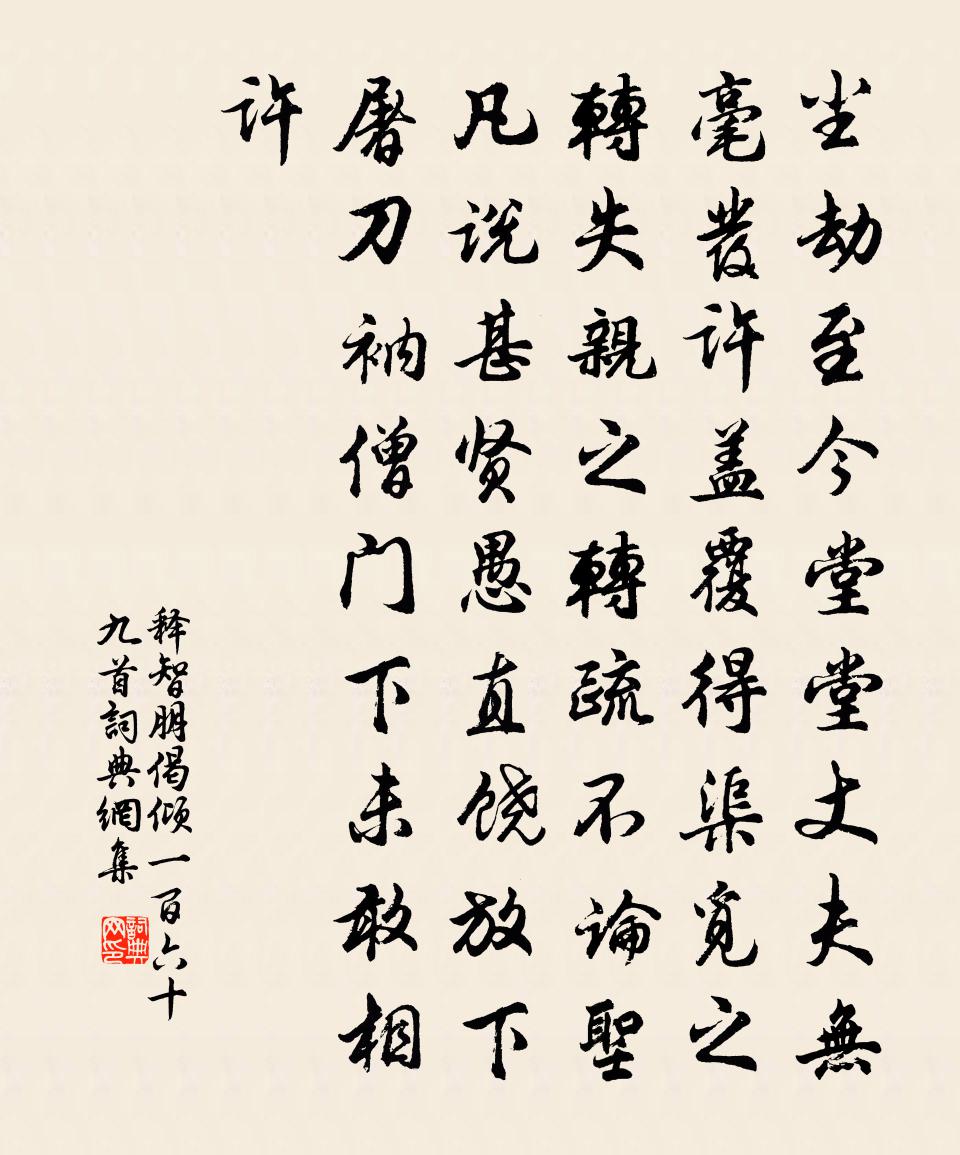 尘劫至今堂堂丈夫無
毫發许盖覆得渠觅之
轉失親之轉疏不論聖
凡说甚贤愚直饶放下
屠刀衲僧门下未敢相
许
释智朋偈倾一百六十
九首詞典網集
詞典网印